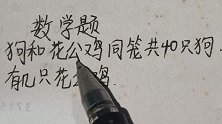 数学题
狗和花公鸡同笼共40只狗.
有几只花鸡.